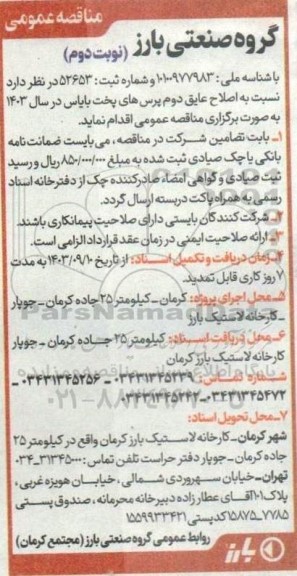 مناقصه عمومی
گروه صنعتی بارز (نوبت دوم)
با شناسه ملی : ۱۰۱۰۰۹۷۷۹۸۳ و شماره ثبت : ۵۲۶۵۳ در نظر دارد
نسبت به اصلاح عایق دوم پرس های پخت بایاس در سال ۱۴۰۳
به صورت برگزاری مناقصه عمومی اقدام نماید.
۱_ بابت تضامین شرکت در مناقصه ، می بایست ضمانت نامه
بانکی یا چک صیادی ثبت شده به مبلغ ۸۵۰/۰۰۰/۰۰۰ ریال و رسید
ثبت صیادی و گواهی امضاء صادرکننده چک از دفترخانه اسناد
رسمی به همراه پاکت دربسته ارسال گردد.
۲_ شرکت کنندگان بایستی دارای صلاحیت پیمانکاری باشند.
۳_ ارائه صلاحیت ایمنی در زمان عقد قرارداد الزامی است.
۴_ زمان دریافت و تکمیل اسناد: از تاریخ ۱۴۰۳/۰۹/۱۰ به مدت
۷ روز کاری قابل تمدید.
۵_ محل اجرای پروژه: کرمان _ کیلومتر ۲۵ جاده کرمان _ جوپار
_ کارخانه لاستیک بارز
۶_ محل دریافت اسناد: کیلومتر ۲۵ جاده کرمان _ جوپار
کارخانه لاستیک بارز کرمان
شماره تماس: ۰۳۴۳۱۳۴۵۲۳۹ _ ۰۳۴۳۱۳۴۵۲۵۶ _
۰۳۴۳۱۳۴۵۴۷۲ _ ۰۳۴۳۱۳۴۵۲۴۲
۷_ محل تحویل اسناد:
شهر کرمان_ کارخانه لاستیک بارز کرمان واقع در کیلومتر ۲۵
جاده کرمان _ جوپار دفتر حراست تلفن تماس : ۳۱۳۴۵۰۰۰_۰۳۴
تهران_ خیابان سهروردی شمالی ، خیابان هویزه غربی ،
پلاک ۱۰۱ آقای عطارزاده دبیرخانه محرمانه ، صندوق پستی
۷۷۸۵_۱۵۸۷۵ کدپستی ۱۵۵۹۹۳۳۴۲۱
روابط عمومی گروه صنعتی بارز (مجتمع کرمان)
بارز